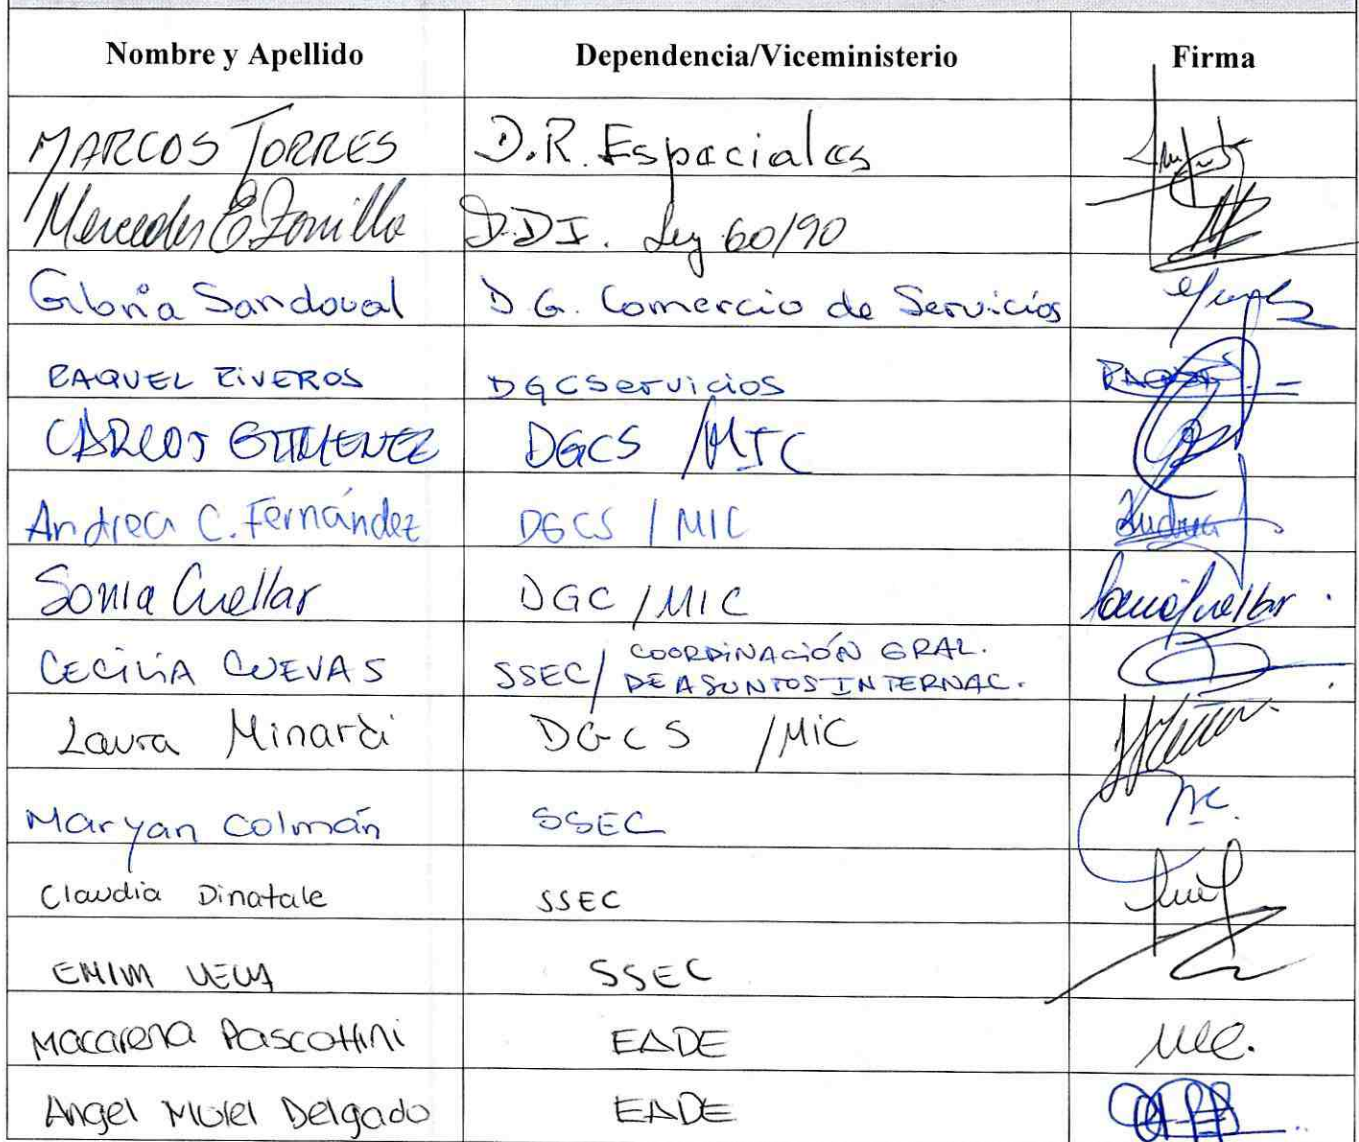 Nombre y Apellido Dependencia/Viceministerio Firma
MARCOS TORRES D.R. Espaciales
Mercedes E. D.D.I. Ley 60/90
Gloria Sandoval D.G. Comercio de Servicios
RAQUEL RIVEROS DGCServicios
CARLOS GIMENEZ DGCS /MIC
Andrea C. Fernández DGCS / MIC Andrea
Sonia Cuellar DGC / MIC Sonia Cuellar
CECILIA CUEVAS SSEC/ COORDINACIÓN GRAL.
DE ASUNTOS INTERNAC.
Laura Minardi DGCS /MIC
Maryan Colmán SSEC MC.
Claudia Dinatale SSEC
SSEC
Macarena Pascottini EADE
Angel Morel Delgado EADE